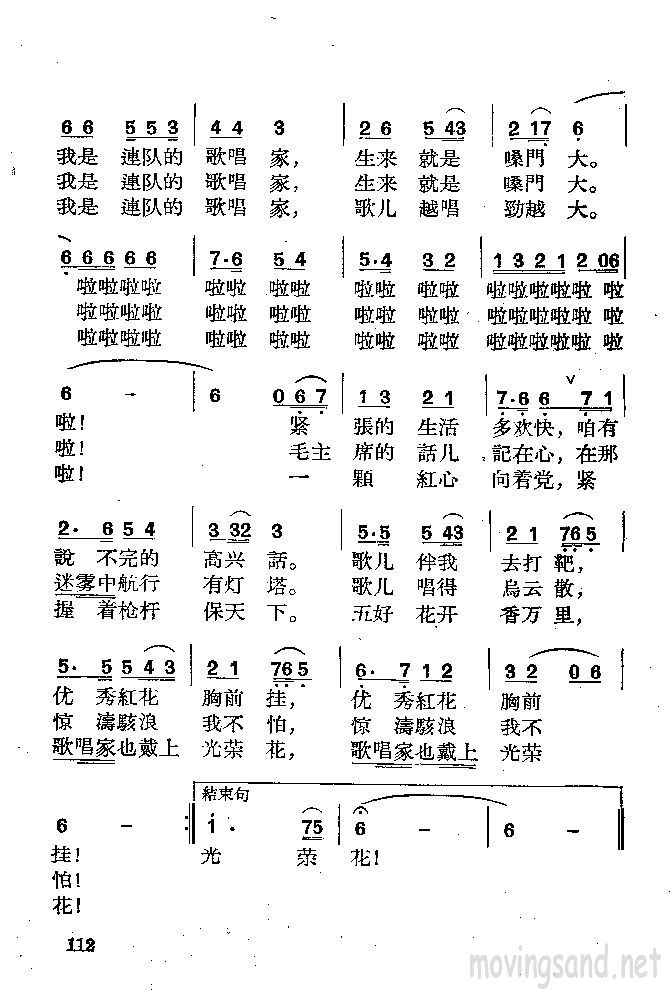 6 6 5 5 3 | 4 4 3 | 2 6 5 43 | 2 17 6
我是 連队的 歌唱 家， 生来 就是 嗓門 大。
我是 連队的 歌唱 家， 生来 就是 嗓門 大。
我是 連队的 歌唱 家， 歌儿 越唱 勁越 大。
6 6 6 6 6 | 7·6 5 4 | 5·4 3 2 | 1 3 2 1 2 06
啦啦啦啦 啦啦 啦啦 啦啦 啦啦 啦啦啦啦啦 啦
啦啦啦啦 啦啦 啦啦 啦啦 啦啦 啦啦啦啦啦 啦
啦啦啦啦 啦啦 啦啦 啦啦 啦啦 啦啦啦啦啦 啦
6 - | 6 0 6 7 | 1 3 2 1 | 7·6 6 v 7 1
啦！ 紧 張的 生活 多欢快，咱有
啦！ 毛主 席的 話儿 記在心，在那
啦！ 一 顆 紅心 向着党，紧
2· 6 5 4 | 3 32 3 | 5·5 5 43 | 2 1 765
說 不完的 高兴 話。 歌儿 伴我 去打 靶，
迷雾中航行 有灯 塔。 歌儿 唱得 烏云 散，
握 着枪杆 保天 下。 五好 花开 香万 里，
5· 5 5 4 3 | 2 1 765 | 6· 7 1 2 | 3 2 0 6
优 秀紅花 胸前 挂， 优 秀紅花 胸前
惊 濤駭浪 我不 怕， 惊 濤駭浪 我不
歌唱家也戴上 光荣 花， 歌唱家也戴上 光荣
結束句
6 - :‖ 1· 75 | 6 - | 6 - ‖
挂！ 光 荣 花！
怕！
花！
112
movingsand.net